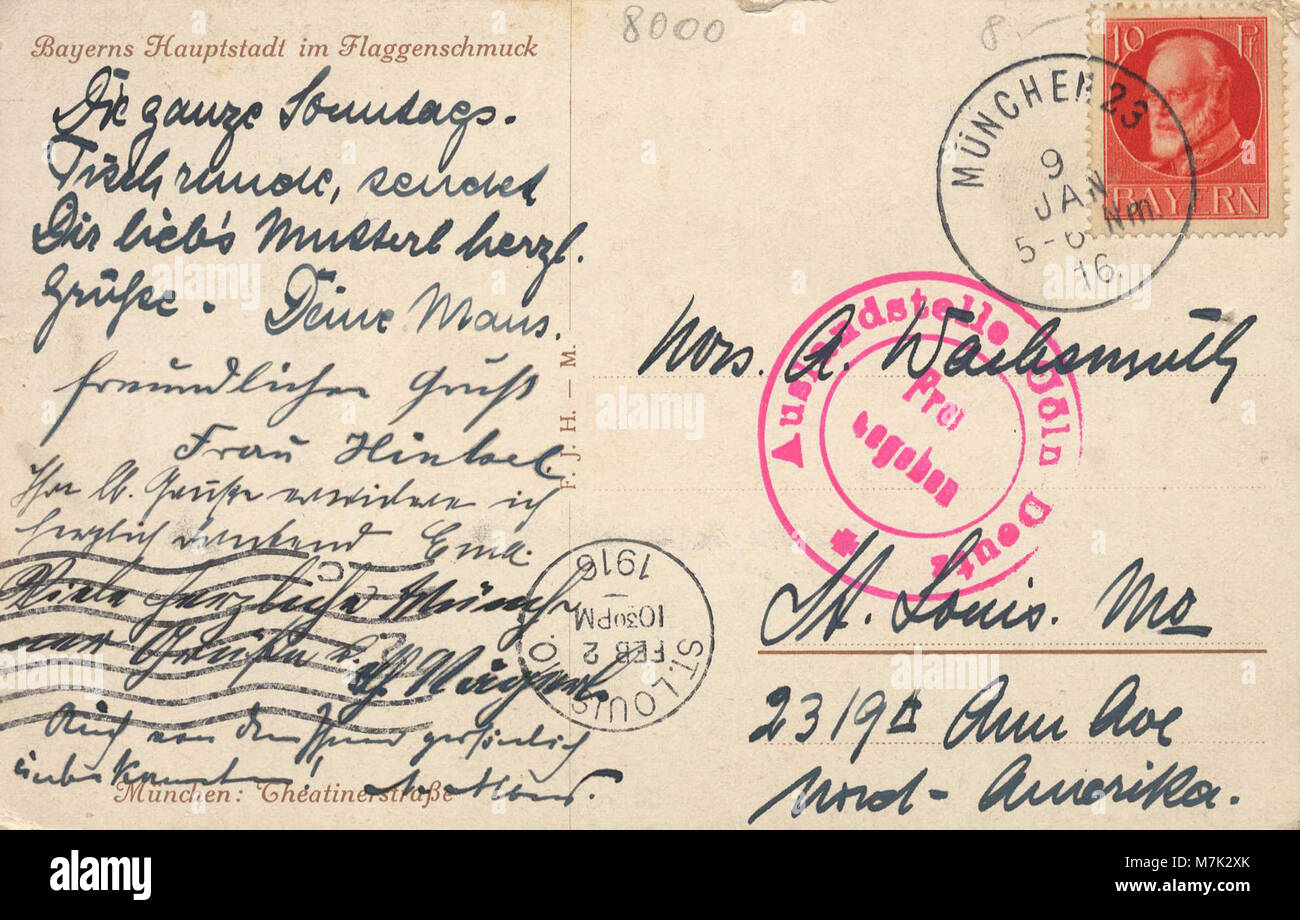 Bayerns Hauptstadt im Flaggenschmuck
8000
8.-
10 Pf
BAYERN
MÜNCHEN 23
9
JAN
5-6 Nm.
16.
Die ganze Sonntags-
Tischrunde, sendet
Dir lieb's Mutterl herzl.
Grüße. Deine Maus.
freundlichen Gruß
Frau
Ihre lb. Grüße erwidere ich
herzlich dankend
Viele herzliche Münch-
ner Grüße
Auch von dem Ihnen persönlich
unbekannten!
München: Theatinerstraße
F. J. H. – M.
Auslandstelle Cöln Deutz
Frei
gegeben
Mrs. A. Wachsmuth
St. Louis. Mo
2319 A Ann Ave
Nord-Amerika.
ST. LOUIS
FEB 2
10 30 PM
1916
alamy
Image ID: M7K2XK
www.alamy.com